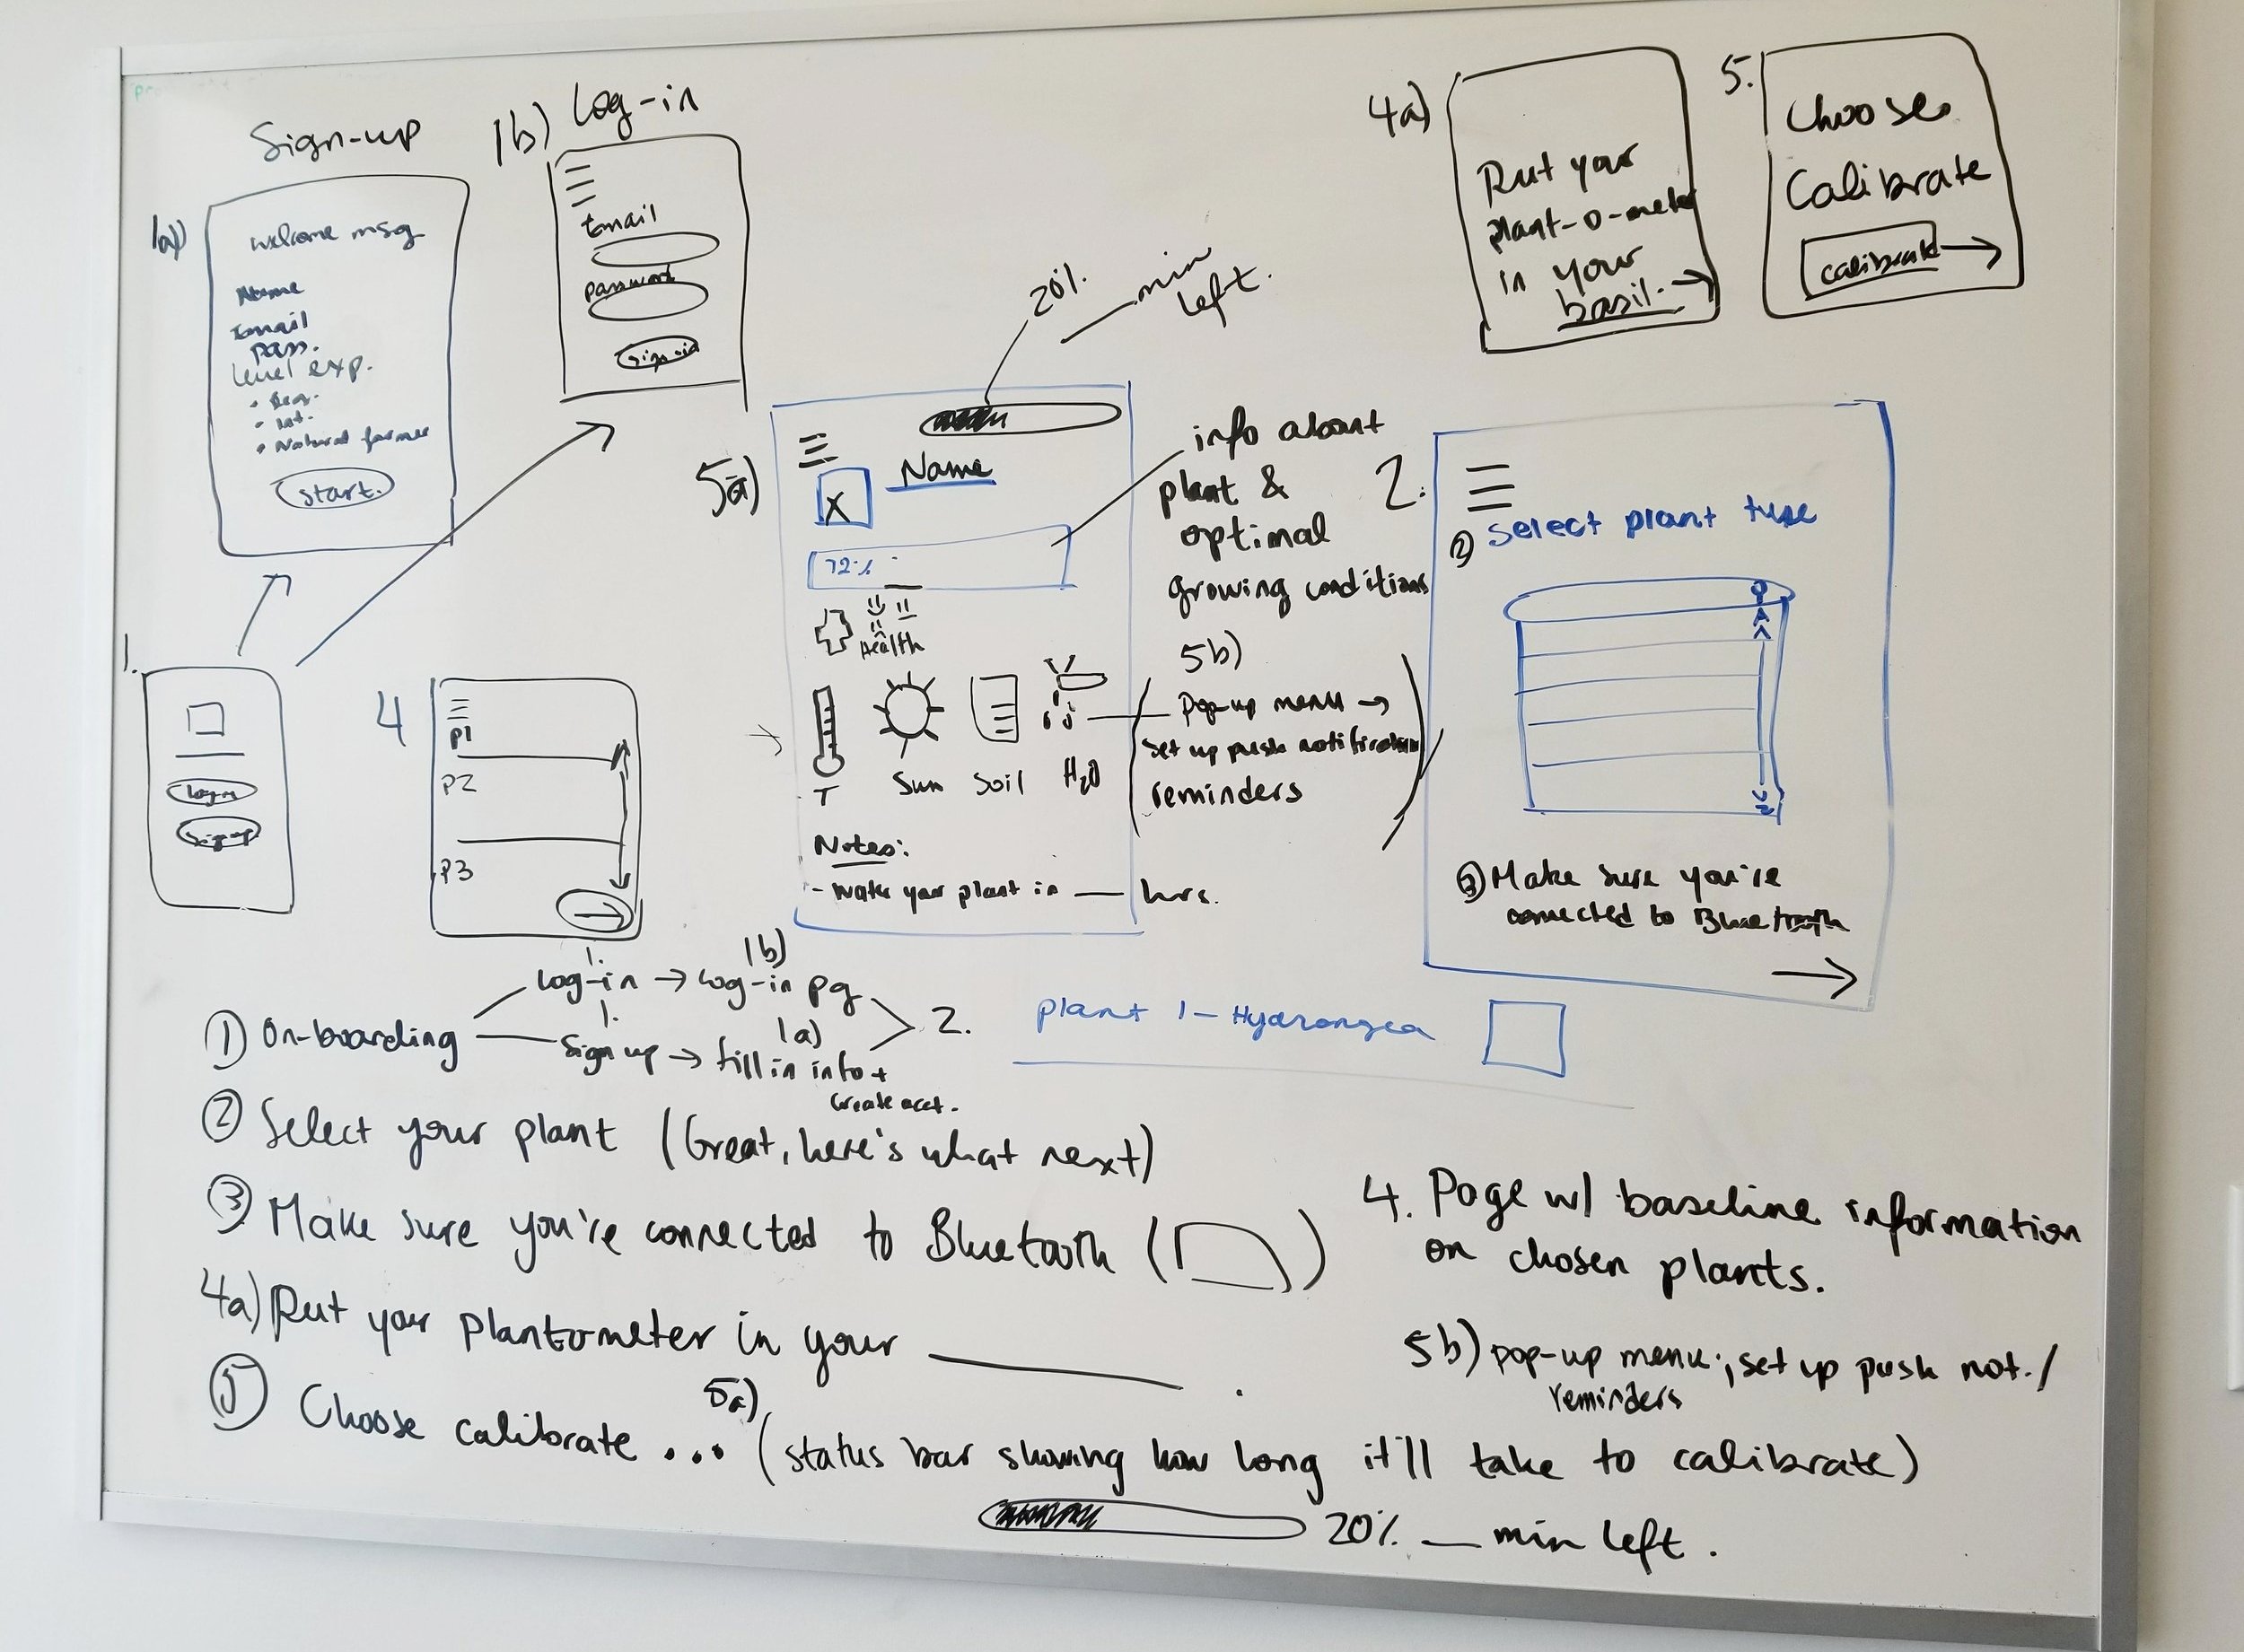 Sign-up
1a)
welcome msg
Name
Email
pass.
Level exp.
• Beg.
• Int.
• Natural farmer
start.
1b) Log-in
Email
password
Sign-in
4a)
Put your
plant-o-meter
in your
basil. →
5.
Choose
Calibrate
calibrate →
20%.
— min
left.
1.
Log in
Sign up
4
P1
P2
P3
5a)
Name
X
72%
Health
T
Sun
Soil
H2O
Notes:
- Water your plant in — hrs.
info about
plant &
optimal
growing conditions
5b)
Pop-up menu →
set up push notification
reminders
2.
② Select plant type
③ Make sure you're
connected to Bluetooth
→
① On-boarding
1.
Log-in → Log-in pg
1b)
1.
Sign up → fill in info +
1a)
Create acct.
2.
plant 1 – Hydrangea
② Select your plant (Great, here's what next)
③ Make sure you're connected to Bluetooth ( )
4a) Put your plantometer in your ______ .
⑤ Choose calibrate ... 5a) (status bar showing how long it'll take to calibrate)
20% — min left.
4. Page w/ baseline information
on chosen plants.
5b) pop-up menu; set up push not./
reminders